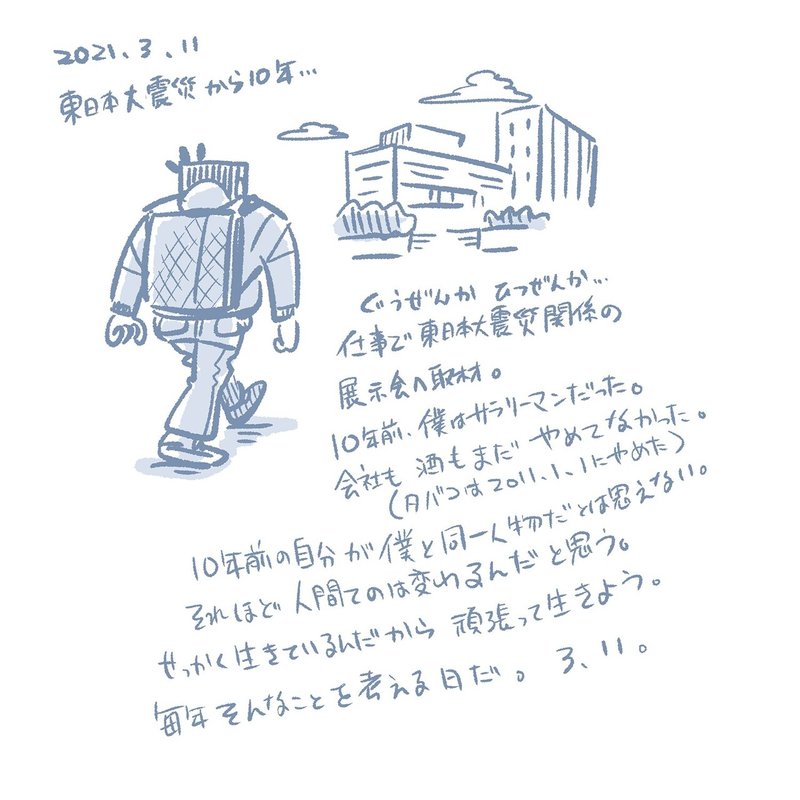 2021.3.11
東日本大震災から10年…
ぐうぜんか ひつぜんか…
仕事で東日本大震災関係の
展示会へ取材。
10年前、僕はサラリーマンだった。
会社も 酒もまだ やめてなかった。
(タバコは2011.1.1にやめた)
10年前の自分が僕と同一人物だとは思えない。
それほど人間てのは変わるんだと思う。
せっかく生きているんだから 頑張って生きよう。
毎年そんなことを考える日だ。 3.11。